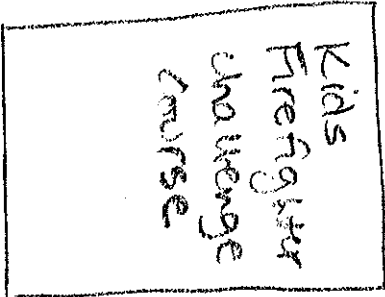 Kids
Firefighter
challenge
Course